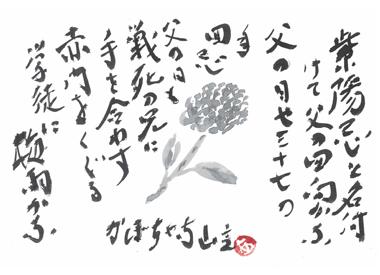 紫陽忌と名付
けて父の回向かな
父の日や三十七の
回忌
父の日も
戦死の兄に
手を合わす
赤門をくぐる
学徒に梅雨かな
かぼちゃ寺山主